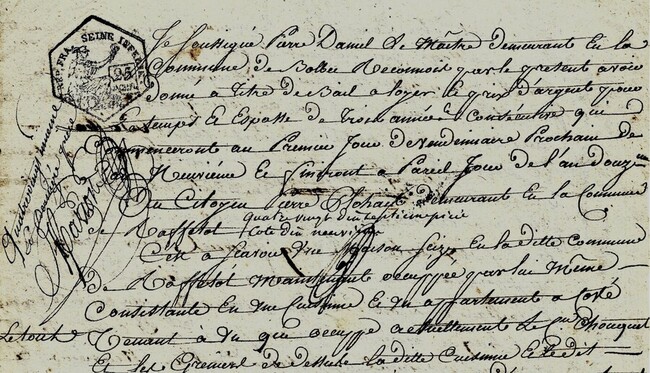 REP. FRA. SEINE INFERRE
25
Je Soussigné Pierre Daniel Le Maître demeurant En la
Commune de Bolbec Reconnois par le present avoir
donné a Titre de Bail a loyer le prix d'argent pour
le temps Et Espasse de Trois années Consécutive qui
Commenceront au Premier Jour de Vendemiaire Prochain de
Neuvieme Et finiront a Pareil Jour de l'an Douz
Au Citoyen Pierre demeurant En la Commune
quatre vingt dix sept
de Raffetot
Cest a Scavoir Une Maison Seize En la ditte Commune
De Raffetot Maintenant occupée par lui Même
Consistante En une Cuisinne Et un appartement a Coté
Le tout Tenant a Du qui occuppe actuellement le Cn Chouquet
Et les Greniers de dessus la ditte Cuisinne Et le dit